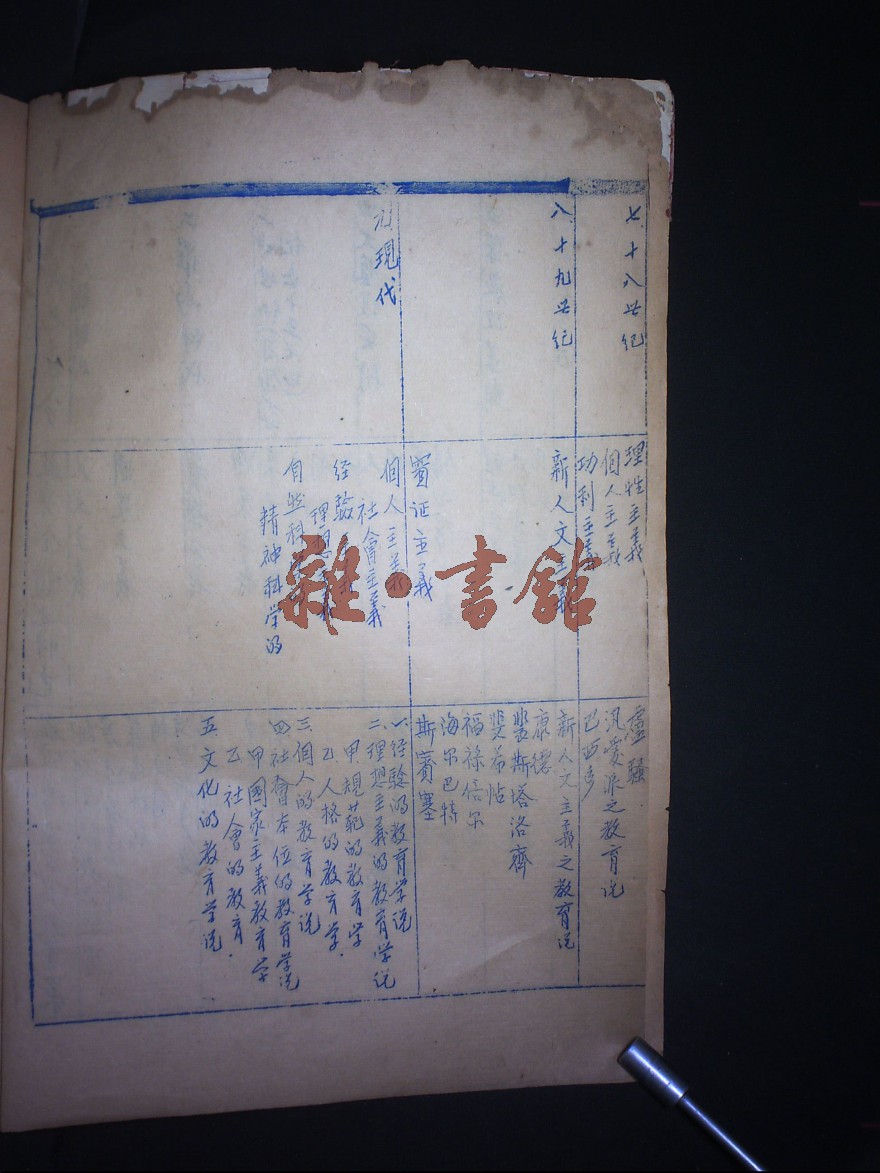 七、十八世纪
理性主義
個人主義
功利主義
盧騷
汎愛派之教育说
巴西多
八、十九世纪
新人文主義
實证主義
新人文主義之教育说
康德
裴斯塔洛齊
斐希帖
福祿倍尔
海尔巴特
斯賓塞
九、現代
個人主義
社會主義
经驗
理想主義
自然科学的
精神科学的
一、经驗的教育学说
二、理想主義的教育学说
甲、規范的教育学
乙、人格的教育学.
三、個人的教育学说
四、社會本位的教育学说
甲、國家主義教育学
乙、社會的教育.
五、文化的教育学说
雜·書館